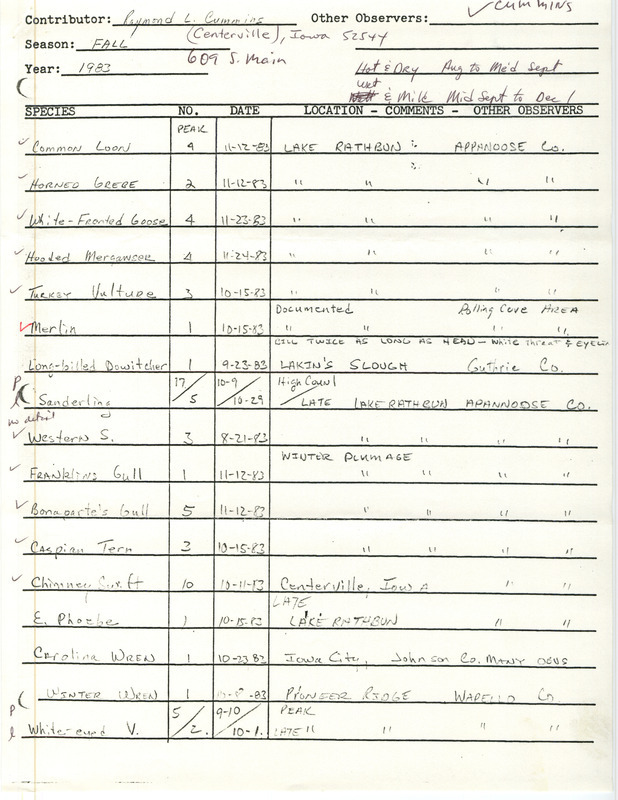 ✓ CUMMINS
Contributor: Raymond L. Cummins Other Observers:
(Centerville), Iowa 52544
Season: FALL
609 S. Main
Year: 1983 Hot & Dry Aug to Med Sept
wet
& Mild Mid Sept to Dec 1
SPECIES NO. DATE LOCATION - COMMENTS - OTHER OBSERVERS
PEAK
✓ Common Loon 4 11-12-83 LAKE RATHBUN : APPANOOSE Co.
✓ HORNED GREBE 2 11-12-83 " " " "
✓ White-Fronted Goose 4 11-23-83 " " " "
✓ Hooded Merganser 4 11-24-83 " " " "
✓ Turkey Vulture 3 10-15-83 " " " "
Documented Rolling Cove AREA
✓ Merlin 1 10-15-83 " " " "
BILL TWICE AS LONG AS HEAD - White throat & EYELIN
Long-billed Dowitcher 1 9-23-83 LAKIN'S SLOUGH Guthrie Co.
P 17/ 10-9/ High Count
l Sanderling /5 /10-29 /LATE LAKE RATHBUN APANNOOSE CO.
no detail
✓ Western S. 3 8-21-83 " " " "
WINTER PLUMAGE
✓ FRANKLINS Gull 1 11-12-83 " " " "
✓ Bonaparte's Gull 5 11-12-83 " " " "
✓ Caspian Tern 3 10-15-83 " " " "
✓ Chimney Swift 10 10-11-83 Centerville, Iowa " "
LATE
E. Phoebe 1 10-15-83 LAKE RATHBUN " "
Carolina WREN 1 10-23-83 Iowa City, Johnson Co. MANY OBVS
WINTER WREN 1 -83 PIONEER RIDGE WAPELLO Co
P 5/ 9-10/ PEAK
l White-eyed V. /2. /10-1. LATE " " " "